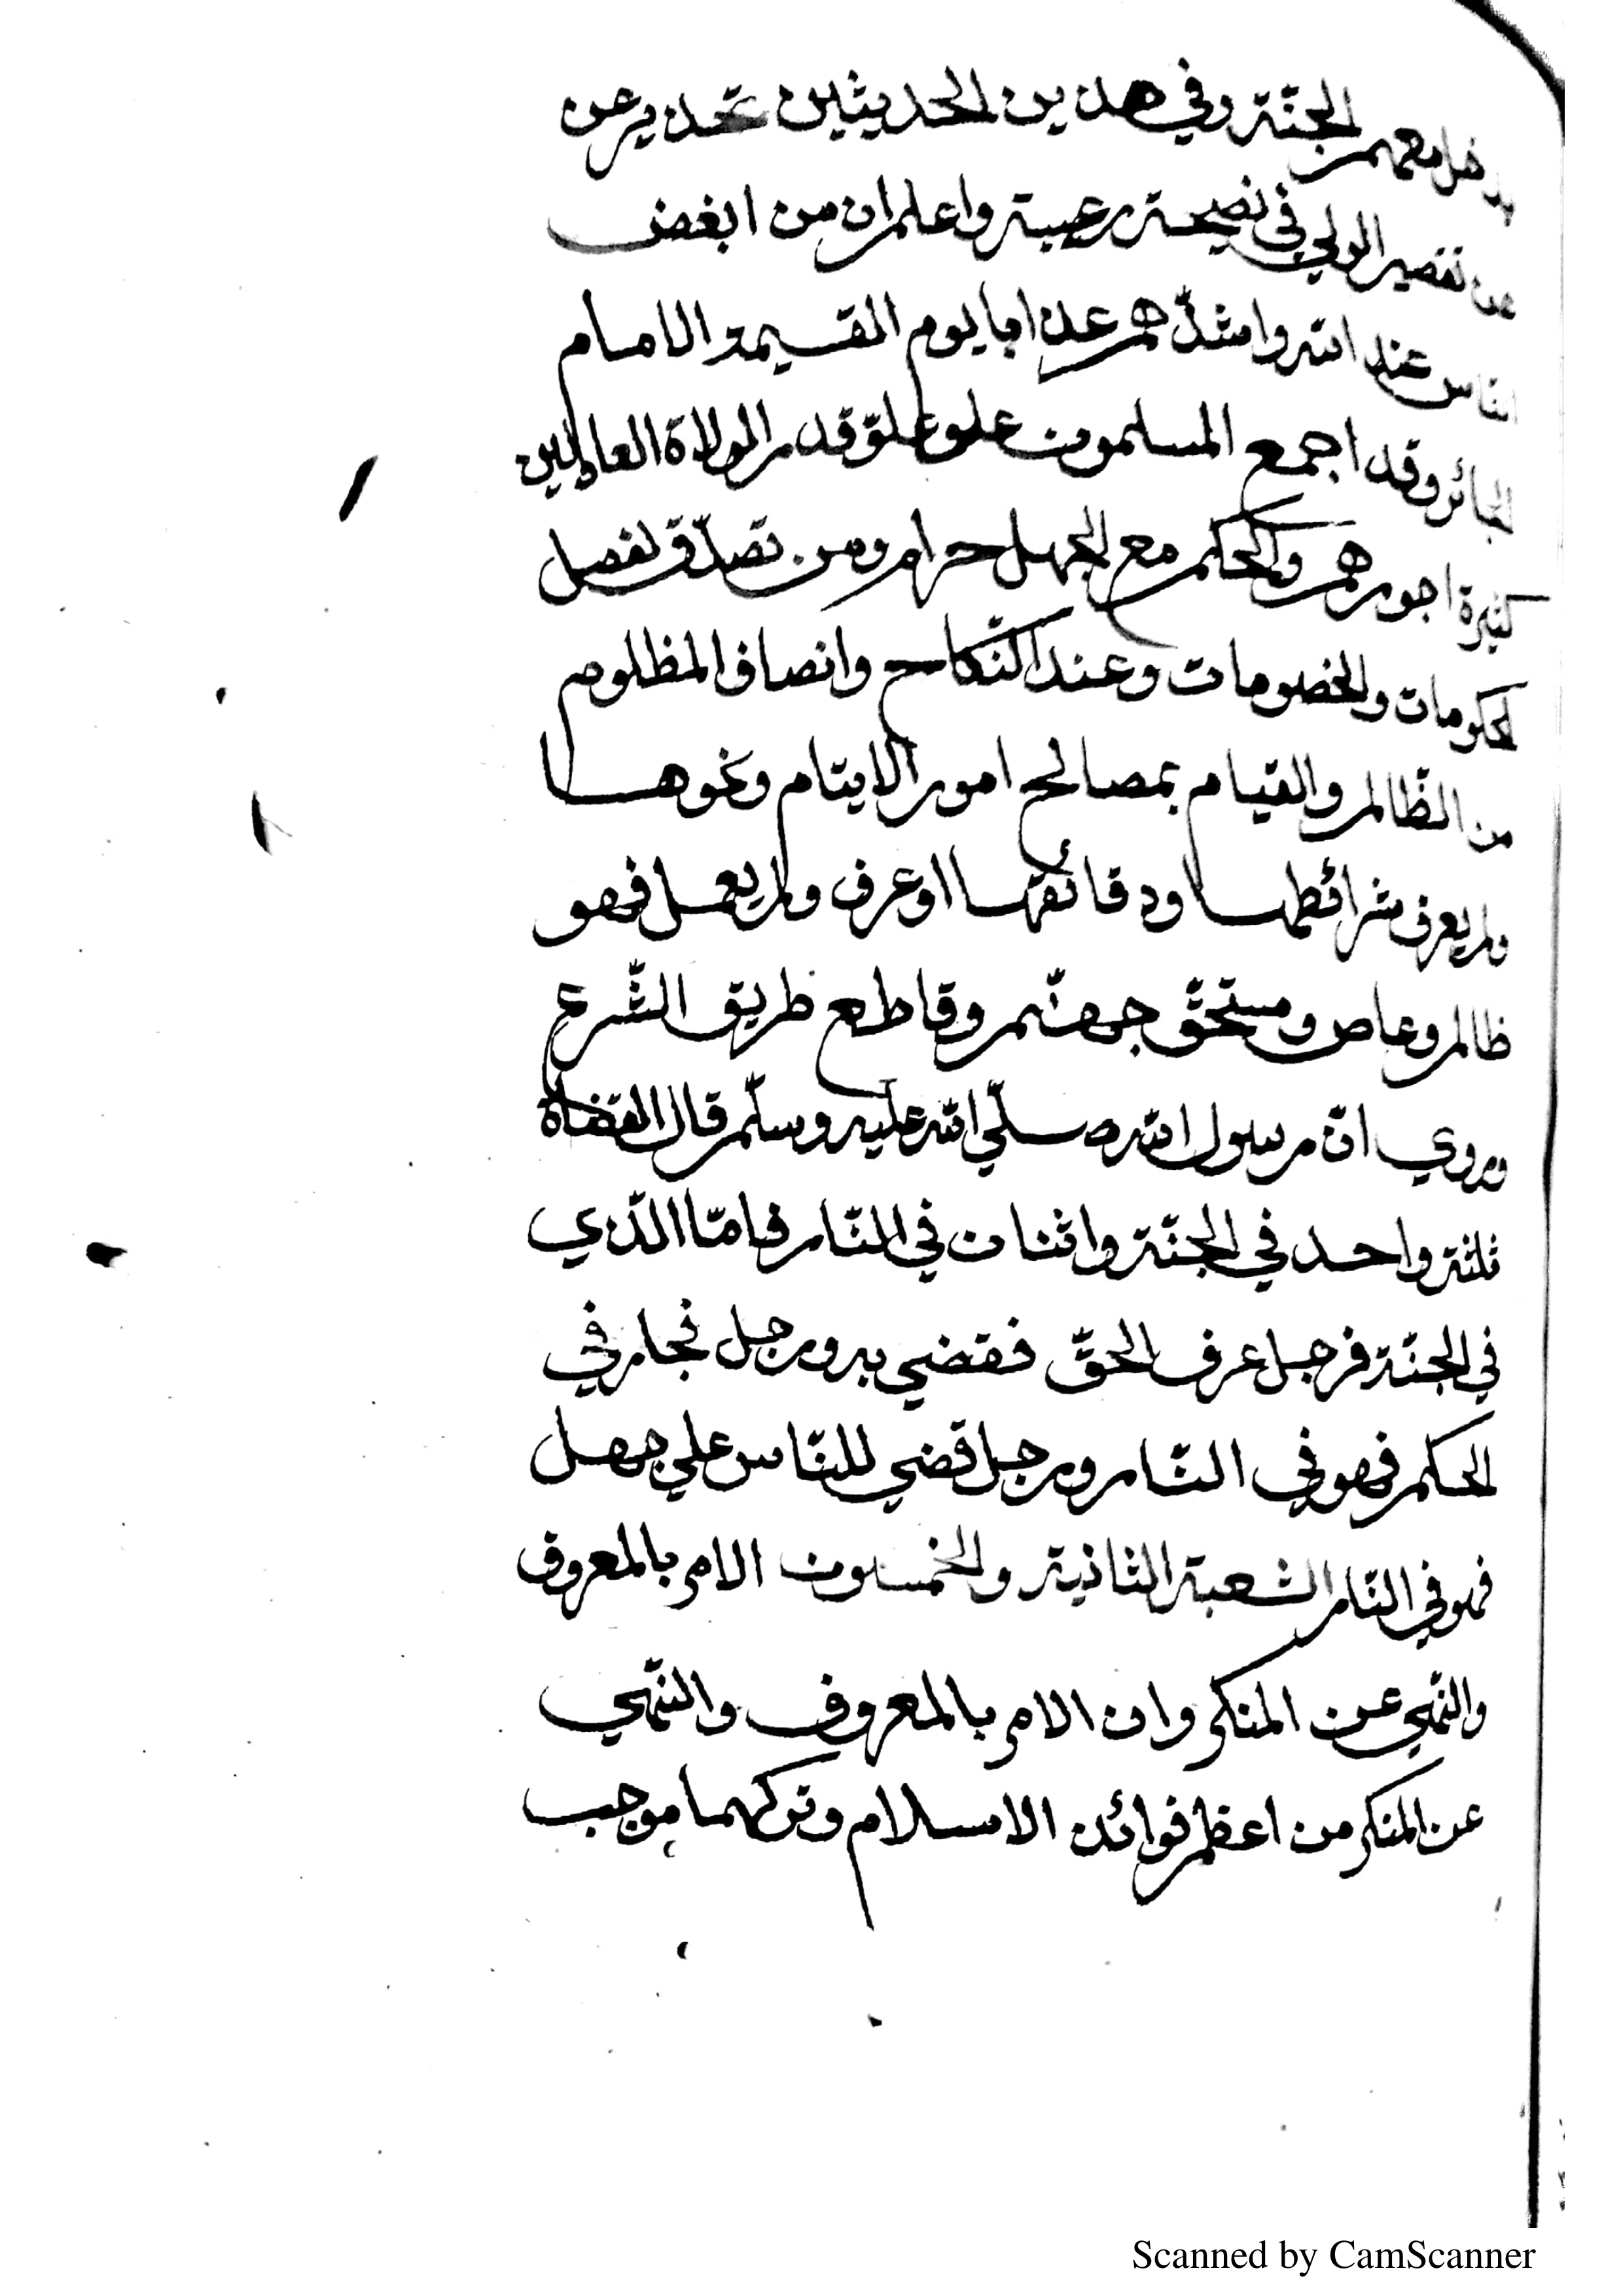 يدخل معهم الجنّة وفي هذين الحديثين تحذير عن
عن تقصير الولي في نصيحة رعيته واعلم ان من ابغض
الناس عند الله واشدّهم عذابا يوم القيمة الامام
الجائر وقد اجمع المسلمون على علوّ قدر الولاة العادلين
كثيرة اجورهم والحكم مع الجهل حرام ومن تصدّق لفصل
الحكومات والخصومات وعند النّكاح وانصاف المظلوم
من الظّالم والقيام بمصالح امور الايتام ونحوها
ولم يعرف شرائطها ودقائقها او عرف ولم يعمل فهو
ظالم وعاص ومستحقّ جهنّم وقاطع طريق الشّرع
وروي انّ رسول الله صلّي الله عليه وسلّم قال القضاة
ثلثة واحد في الجنّة واثنان في النّار فامّا الّذي
في الجنّة فرجل عرف الحقّ فقضي به ورجل فجار في
الحكم فهو في النّار ورجل قضي للنّاس علي جهل
فهو في النّار الشعبة الثانية والخمسون الامر بالمعروف
والنّهي عن المنكر وان الامر بالمعروف والنّهي
عن المنكر من اعظم فوائد الاسلام وتركهما موجب
Scanned by CamScanner